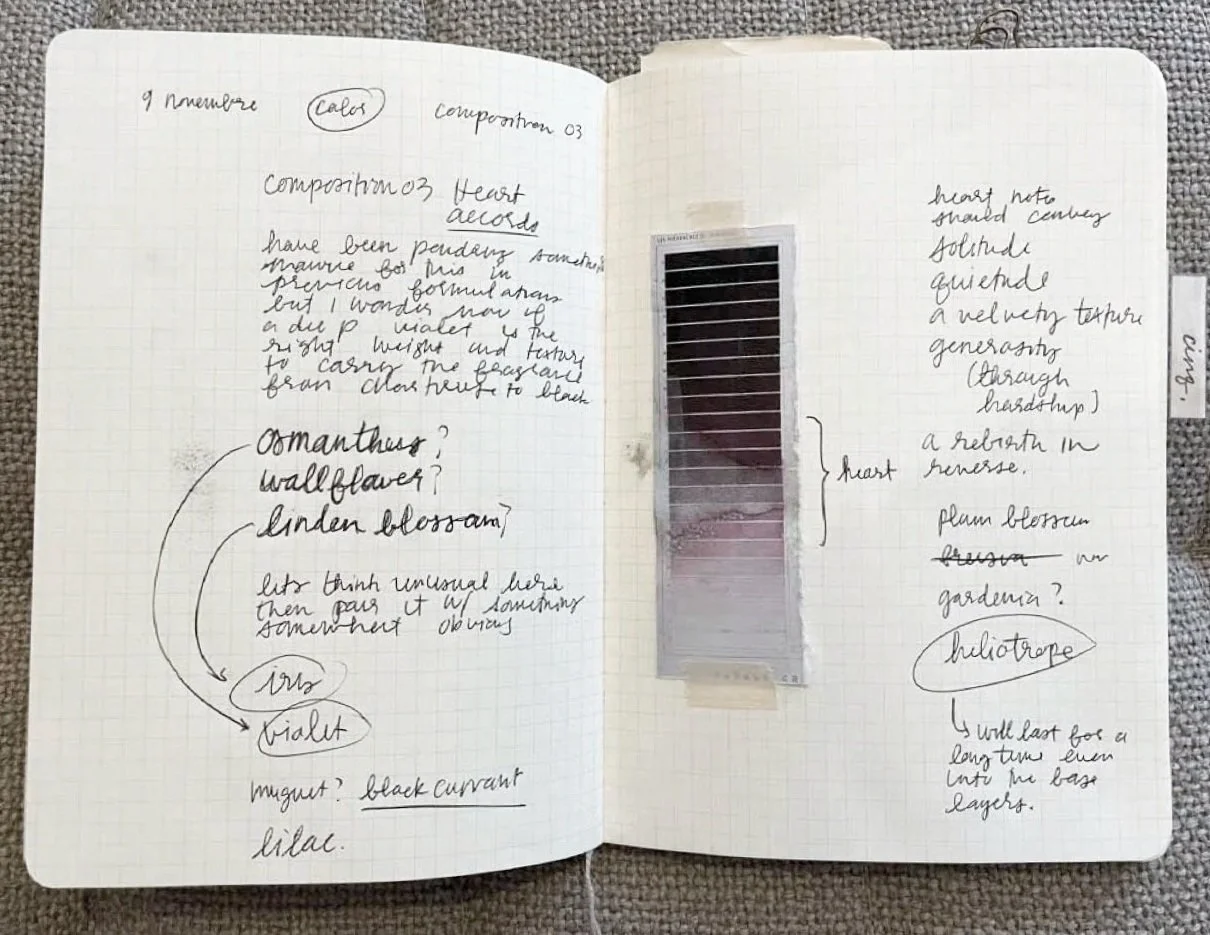 9 novembre calor composition 03
composition 03 Heart
accords
have been pondering something
mauve for this in
previous formulations
but I wonder now if
a deep violet is the
right weight and texture
to carry the fragrance
from chartreuse to black
osmanthus?
wallflower?
linden blossom?
lets think unusual here
then pair it w/ something
somewhat obvious
iris
violet
muguet? black currant
lilac.
heart
heart note
should convey
solitude
quietude
a velvety texture
generosity
(through
hardship)
a rebirth in
reverse.
plum blossom
gardenia?
heliotrope
will last for a
long time even
into the base
layers.
cinq.